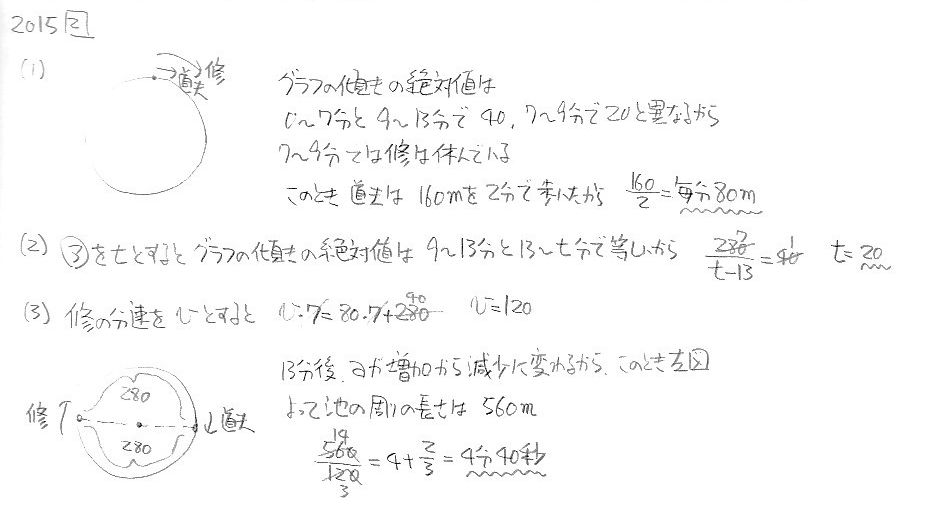 2015 2
(1)
修
道夫
グラフの傾きの絶対値は
0~7分と9~13分で40, 7~9分で20と異なるから
7~9分では修は休んでいる
このとき 道夫は 160mを2分で歩いたから 160/2=毎分80m
(2) ③をtとするとグラフの傾きの絶対値は 9~13分と13~t分で等しいから 280/(t-13)=40 7 1 t=20
(3) 修の分速を vとすると v・7=80・7+280 40 v=120
13分後、yが増加から減少に変わるから、このとき左図
280
修↑ ↓道夫
よって池の周りの長さは 560m
280
560/120=4+2/3=4分40秒
14
3